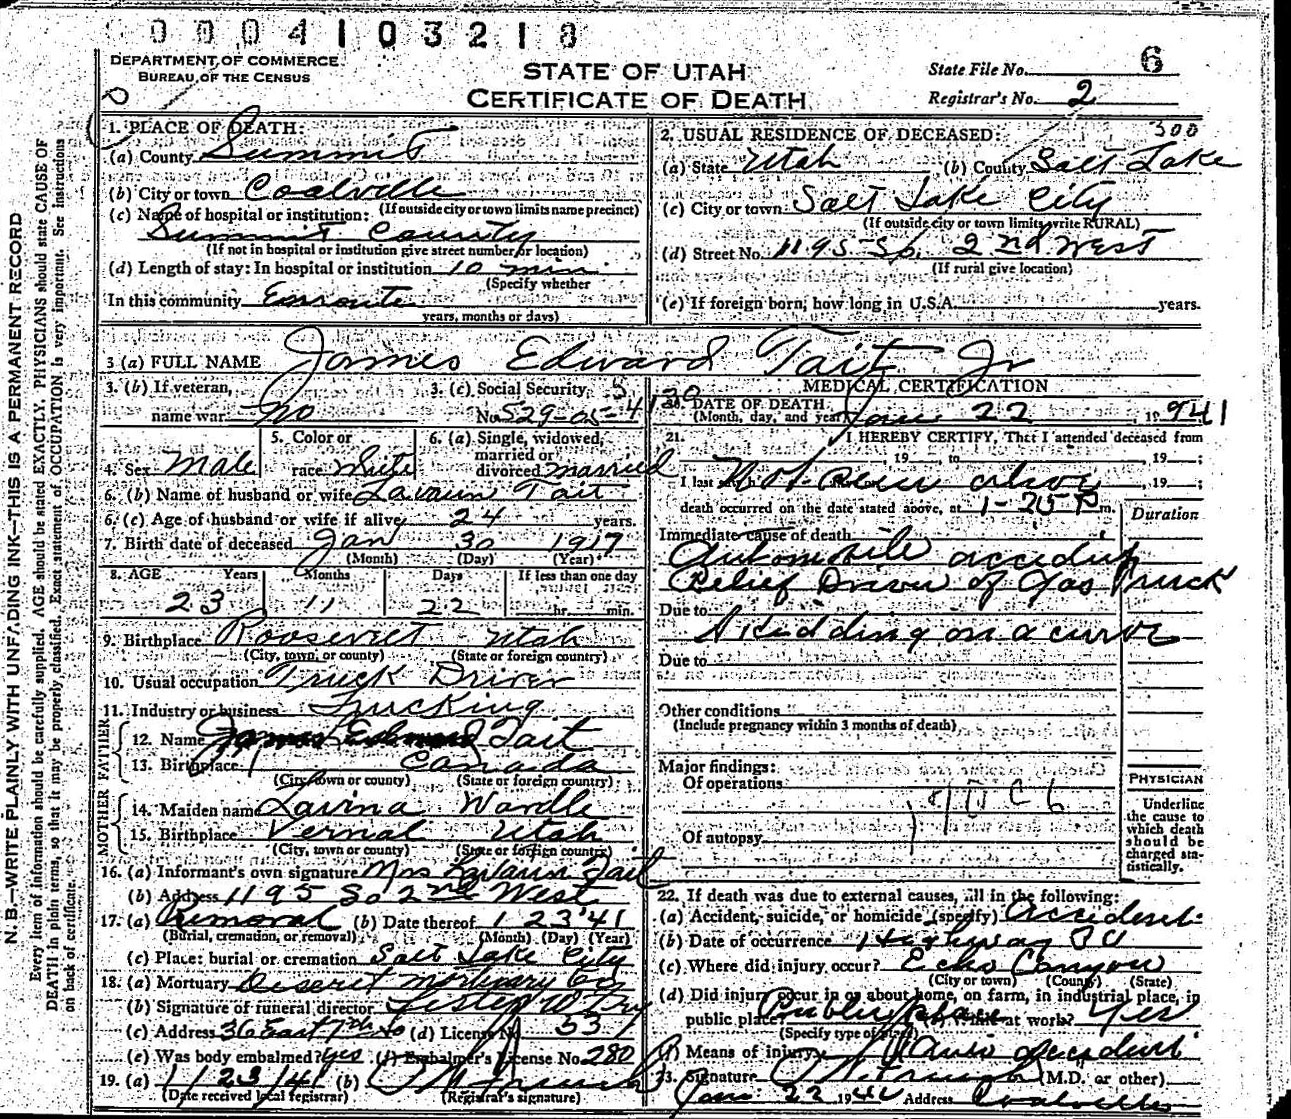 0004103218
DEPARTMENT OF COMMERCE
BUREAU OF THE CENSUS
STATE OF UTAH
CERTIFICATE OF DEATH
State File No. 6
Registrar's No. 2
N. B.—WRITE PLAINLY WITH UNFADING INK—THIS IS A PERMANENT RECORD
Every item of information should be carefully supplied. AGE should be stated EXACTLY. PHYSICIANS should state CAUSE OF
DEATH in plain terms, so that it may be properly classified. Exact statement of OCCUPATION is very important. See instructions
on back of certificate.
1. PLACE OF DEATH:
(a) County Summit
(b) City or town Coalville
(If outside city or town limits name precinct)
(c) Name of hospital or institution:
Summit County
(If not in hospital or institution give street number or location)
(d) Length of stay: In hospital or institution 10 min
(Specify whether
In this community Enroute
years, months or days)
2. USUAL RESIDENCE OF DECEASED: 300
(a) State Utah (b) County Salt Lake
(c) City or town Salt Lake City
(If outside city or town limits write RURAL)
(d) Street No. 1195 So. 2nd West
(If rural give location)
(e) If foreign born, how long in U.S.A. years.
3 (a) FULL NAME James Edward Tait Jr
3. (b) If veteran,
name war no
3. (c) Social Security
No. 529-05-4139
4. Sex Male
5. Color or
race white
6. (a) Single, widowed,
married or
divorced married
6. (b) Name of husband or wife Lavaun Tait
6. (c) Age of husband or wife if alive 24 years.
7. Birth date of deceased Jan 30 1917
(Month) (Day) (Year)
8. AGE Years Months Days If less than one day
23 11 22 hr. min.
9. Birthplace Roosevelt Utah
(City, town, or county) (State or foreign country)
10. Usual occupation Truck Driver
11. Industry or business Trucking
FATHER
12. Name James Edward Tait
13. Birthplace Canada
(City, town or county) (State or foreign country)
MOTHER
14. Maiden name Lavina Wardle
15. Birthplace Vernal Utah
(City, town or county) (State or foreign country)
16. (a) Informant's own signature Mrs Lavaun Tait
(b) Address 1195 So 2nd West
17. (a) Removal (b) Date thereof 1 23 '41
(Burial, cremation, or removal) (Month) (Day) (Year)
(c) Place: burial or cremation Salt Lake City
18. (a) Mortuary Deseret Mortuary Co
(b) Signature of funeral director
(c) Address 36 East 7th So (d) License No. 537
(e) Was body embalmed? yes (f) Embalmer's License No. 280
19. (a) 1/23/41 (b)
(Date received local registrar) (Registrar's signature)
MEDICAL CERTIFICATION
20. DATE OF DEATH
(Month, day, and year) Jan 22, 1941
21. I HEREBY CERTIFY, That I attended deceased from
, 19 , to , 19 ;
I last saw h Not seen alive , 19 ;
death occurred on the date stated above, at 1-25 P m.
Duration
Immediate cause of death
Automobile accident
Relief Driver of Gas Truck
Due to
Skidding on a curve
Due to
Other conditions
(Include pregnancy within 3 months of death)
Major findings:
Of operations
Of autopsy
PHYSICIAN
Underline
the cause to
which death
should be
charged sta-
tistically.
22. If death was due to external causes, fill in the following:
(a) Accident, suicide, or homicide (specify) Accident
(b) Date of occurrence Highway 30
(c) Where did injury occur? Echo Canyon
(City or town) (County) (State)
(d) Did injury occur in or about home, on farm, in industrial place, in
public place? Public place While at work? Yes
(Specify type of place)
(f) Means of injury Auto accident
23. Signature (M.D. or other)
Jan 22 1941 Address Coalville